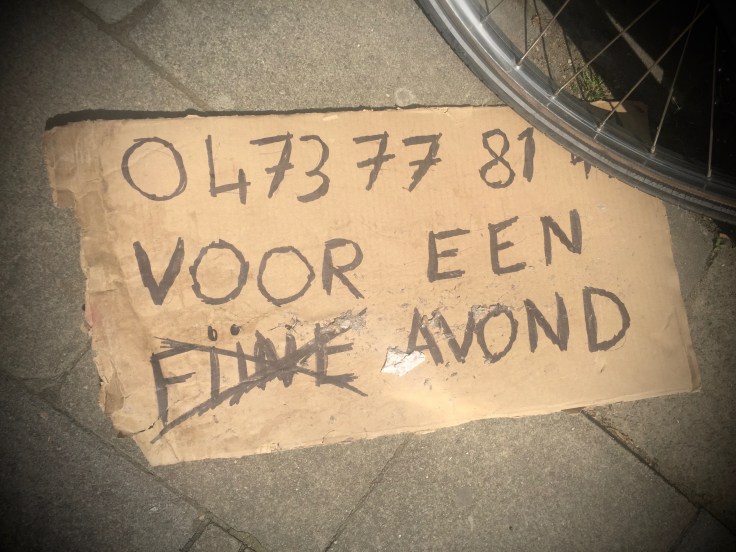 0473 77 81
VOOR EEN
FIJNE AVOND